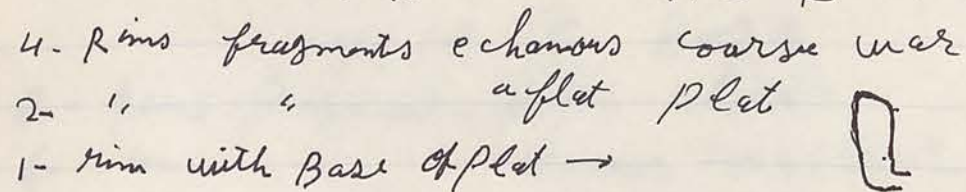 4- Rims fragments echanous coarse war
2- " " a flat Plat
1- rim with Base of Plat →